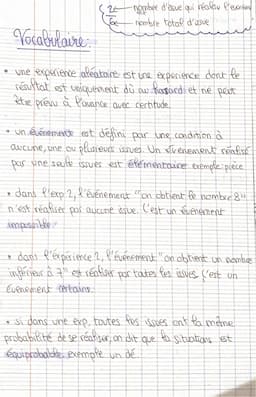 2 ← nombre d'issue qui réalise l'événement
6 ← nombre total d'issue
Vocabulaire:
• une experience aléatoire est une experience dont le
résultat est uniquement dû au hasard et ne peut
être prévu à l'avance avec certitude.
• un événement est défini par une condition à
aucune, une ou plusieurs issues. Un événement réalisé
par une seule issues est élémentaire exemple: pièce
• dans l'exp 2, l'événement "on obtient le nombre 8"
n'est réaliser par aucune issue. C'est un événement
impossible.
• dans l'expérience 2, l'événement "on obtient un nombre
inférieur à 7" est réaliser par toutes les issues, c'est un
événement certains.
• si dans une exp, toutes les issues ont la même
probabilité de se réaliser, on dit que la situations est
équiprobable. exemple un dé.